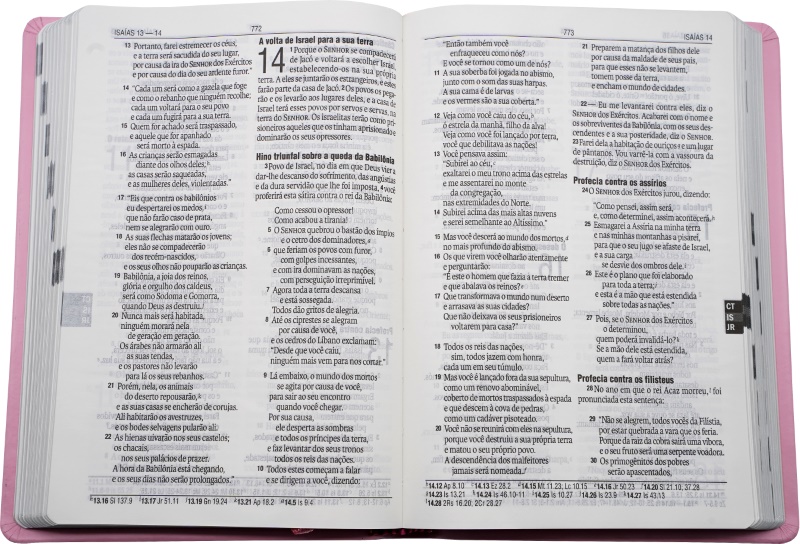 ISAÍAS 13 — 14
772
13 Portanto, farei estremecer os céus,
e a terra será sacudida do seu lugar,
por causa da ira do SENHOR dos Exércitos
e por causa do dia do seu ardente furor."
14 "Cada um será como a gazela que foge
e como o rebanho que ninguém recolhe;
cada um voltará para o seu povo
e cada um fugirá para a sua terra.
15 Quem for achado será traspassado,
e aquele que for apanhado
será morto à espada.
16 As crianças serão esmagadas
diante dos olhos deles;
as casas serão saqueadas,
e as mulheres deles, violentadas."
17 "Eis que contra os babilônios
eu despertarei os medos,
que não farão caso de prata,
nem se alegrarão com ouro.
18 As suas flechas matarão os jovens;
eles não se compadecerão
dos recém-nascidos,
e os seus olhos não pouparão as crianças.
19 Babilônia, a joia dos reinos,
glória e orgulho dos caldeus,
será como Sodoma e Gomorra,
quando Deus as destruiu.
20 Nunca mais será habitada,
ninguém morará nela
de geração em geração.
Os árabes não armarão ali
as suas tendas,
e os pastores não levarão
para lá os seus rebanhos.
21 Porém, nela, os animais
do deserto repousarão,
e as suas casas se encherão de corujas.
Ali habitarão os avestruzes,
e os bodes selvagens pularão ali.
22 As hienas uivarão nos seus castelos;
os chacais,
nos seus palácios de prazer.
A hora da Babilônia está chegando,
e os seus dias não serão prolongados."
A volta de Israel para a sua terra
14 1 Porque o SENHOR se compadecerá
de Jacó e voltará a escolher Israel,
estabelecendo-os na sua própria
terra. A eles se juntarão os estrangeiros, e estes
farão parte da casa de Jacó. 2 Os povos os pega-
rão e os levarão aos lugares deles, e a casa de
Israel terá esses povos por servos e servas, na
terra do SENHOR. Os israelitas terão como pri-
sioneiros aqueles que os tinham aprisionado e
dominarão os seus opressores.
Hino triunfal sobre a queda da Babilônia
3 Povo de Israel, no dia em que Deus vier a
dar-lhe descanso do sofrimento, das angústias
e da dura servidão que lhe foi imposta, 4 você
proferirá esta sátira contra o rei da Babilônia:
Como cessou o opressor!
Como acabou a tirania!
5 O SENHOR quebrou o bastão dos ímpios
e o cetro dos dominadores,
6 que feriam os povos com furor,
com golpes incessantes,
e com ira dominavam as nações,
com perseguição irreprimível.
7 Agora toda a terra descansa
e está sossegada.
Todos dão gritos de alegria.
8 Até os ciprestes se alegram
por causa de você,
e os cedros do Líbano exclamam:
"Desde que você caiu,
ninguém mais vem para nos cortar."
9 Lá embaixo, o mundo dos mortos
se agita por causa de você,
para sair ao seu encontro
quando você chegar.
Por sua causa,
ele desperta as sombras
e todos os príncipes da terra,
e faz levantar dos seus tronos
todos os reis das nações.
10 Todos estes começam a falar
e se dirigem a você, dizendo:
13.16 Sl 137.9 13.17 Jr 51.11 13.19 Gn 19.24 13.21 Ap 18.2 14.5 Is 9.4
773
ISAÍAS 14
"Então também você
enfraqueceu como nós?
E você se tornou como um de nós?
11 A sua soberba foi jogada no abismo,
junto com o som das suas harpas.
A sua cama é de larvas
e os vermes são a sua coberta."
12 Veja como você caiu do céu,
ó estrela da manhã, filho da alva!
Veja como você foi lançado por terra,
você que debilitava as nações!
13 Você pensava assim:
"Subirei ao céu,
exaltarei o meu trono acima das estrelas
e me assentarei no monte
da congregação,
nas extremidades do Norte.
14 Subirei acima das mais altas nuvens
e serei semelhante ao Altíssimo."
15 Mas você descerá ao mundo dos mortos,
no mais profundo do abismo.
16 Os que virem você olharão atentamente
e perguntarão:
"É este o homem que fazia a terra tremer
e que abalava os reinos?
17 Que transformava o mundo num deserto
e arrasava as suas cidades?
Que não deixava os seus prisioneiros
voltarem para casa?"
18 Todos os reis das nações,
sim, todos jazem com honra,
cada um em seu túmulo.
19 Mas você é lançado fora da sua sepultura,
como um renovo abominável,
coberto de mortos traspassados à espada
e que descem à cova de pedras,
como um cadáver pisoteado.
20 Você não se reunirá com eles na sepultura,
porque você destruiu a sua própria terra
e matou o seu próprio povo.
A descendência dos malfeitores
jamais será nomeada.
21 Preparem a matança dos filhos dele
por causa da maldade de seus pais,
para que esses não se levantem,
tomem posse da terra,
e encham o mundo de cidades.
22 — Eu me levantarei contra eles, diz o
SENHOR dos Exércitos. Acabarei com o nome e
os sobreviventes da Babilônia, com os seus des-
cendentes e a sua posteridade, diz o SENHOR.
23 Farei dela a habitação de ouriços e um lugar
de pântanos. Vou varrê-la com a vassoura da
destruição, diz o SENHOR dos Exércitos.
Profecia contra os assírios
24 O SENHOR dos Exércitos jurou, dizendo:
"Como pensei, assim será,
e, como determinei, assim acontecerá.
25 Esmagarei a Assíria na minha terra
e nas minhas montanhas a pisarei,
para que o seu jugo se afaste de Israel,
e a sua carga
se desvie dos ombros dele.
26 Este é o plano que foi elaborado
para toda a terra;
e esta é a mão que está estendida
sobre todas as nações."
27 Pois, se o SENHOR dos Exércitos
o determinou,
quem poderá invalidá-lo?
Se a mão dele está estendida,
quem a fará voltar atrás?
Profecia contra os filisteus
28 No ano em que o rei Acaz morreu, foi
pronunciada esta sentença:
29 "Não se alegrem, todos vocês da Filístia,
por estar quebrada a vara que os feria.
Porque da raiz da cobra sairá uma víbora,
e o seu fruto será uma serpente voadora.
30 Os primogênitos dos pobres
serão apascentados,
14.12 Ap 8.10 14.13 Ez 28.2 14.15 Mt 11.23; Lc 10.15 14.16 Jr 50.23 14.20 Sl 21.10; 37.28
14.23 Is 13.21 14.24 Is 46.10-11 14.25 Is 10.27 14.26 Is 23.9 14.27 Is 43.13
14.28 2Rs 16.20; 2Cr 28.27
CT
IS
JR